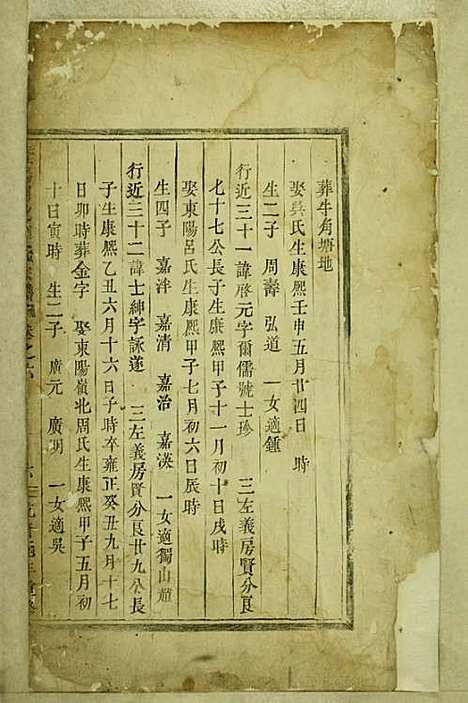 葬牛角塘地
娶吳氏生康熙壬申五月廿四日 時
生二子 周壽 弘道 一女適鍾
行近三十一諱啓元字爾儒號士珍 三左義房賢分良
七十七公長子生康熙甲子十一月初十日戌時
娶東陽呂氏生康熙甲子七月初六日辰時
生四子 嘉泮 嘉清 嘉治 嘉渶 一女適獨山趙
行近三十二諱士紳字詠遂 三左義房賢分良廿九公長
子生康熙乙丑六月十六日子時卒雍正癸丑九月十七
日卯時葬金字 娶東陽嶺北周氏生康熙甲子五月初
十日寅時 生二子 廣元 廣明 一女適吳
卷之六